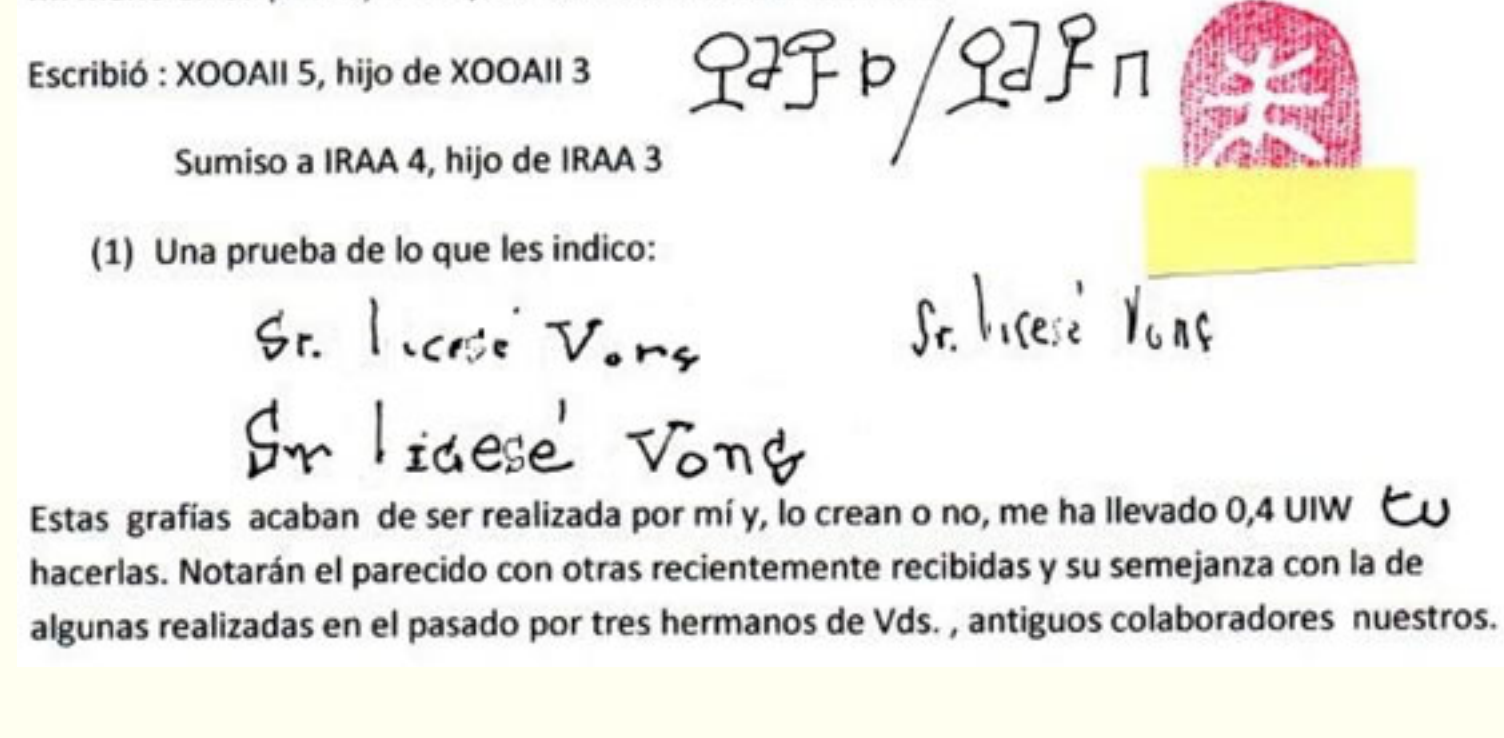 Escribió : XOOAII 5, hijo de XOOAII 3
Sumiso a IRAA 4, hijo de IRAA 3
(1) Una prueba de lo que les indico:
Sr. licesé Vong
Sr. licesé Vong
Sr licesé Vong
Estas grafías acaban de ser realizada por mí y, lo crean o no, me ha llevado 0,4 UIW
hacerlas. Notarán el parecido con otras recientemente recibidas y su semejanza con la de
algunas realizadas en el pasado por tres hermanos de Vds. , antiguos colaboradores nuestros.